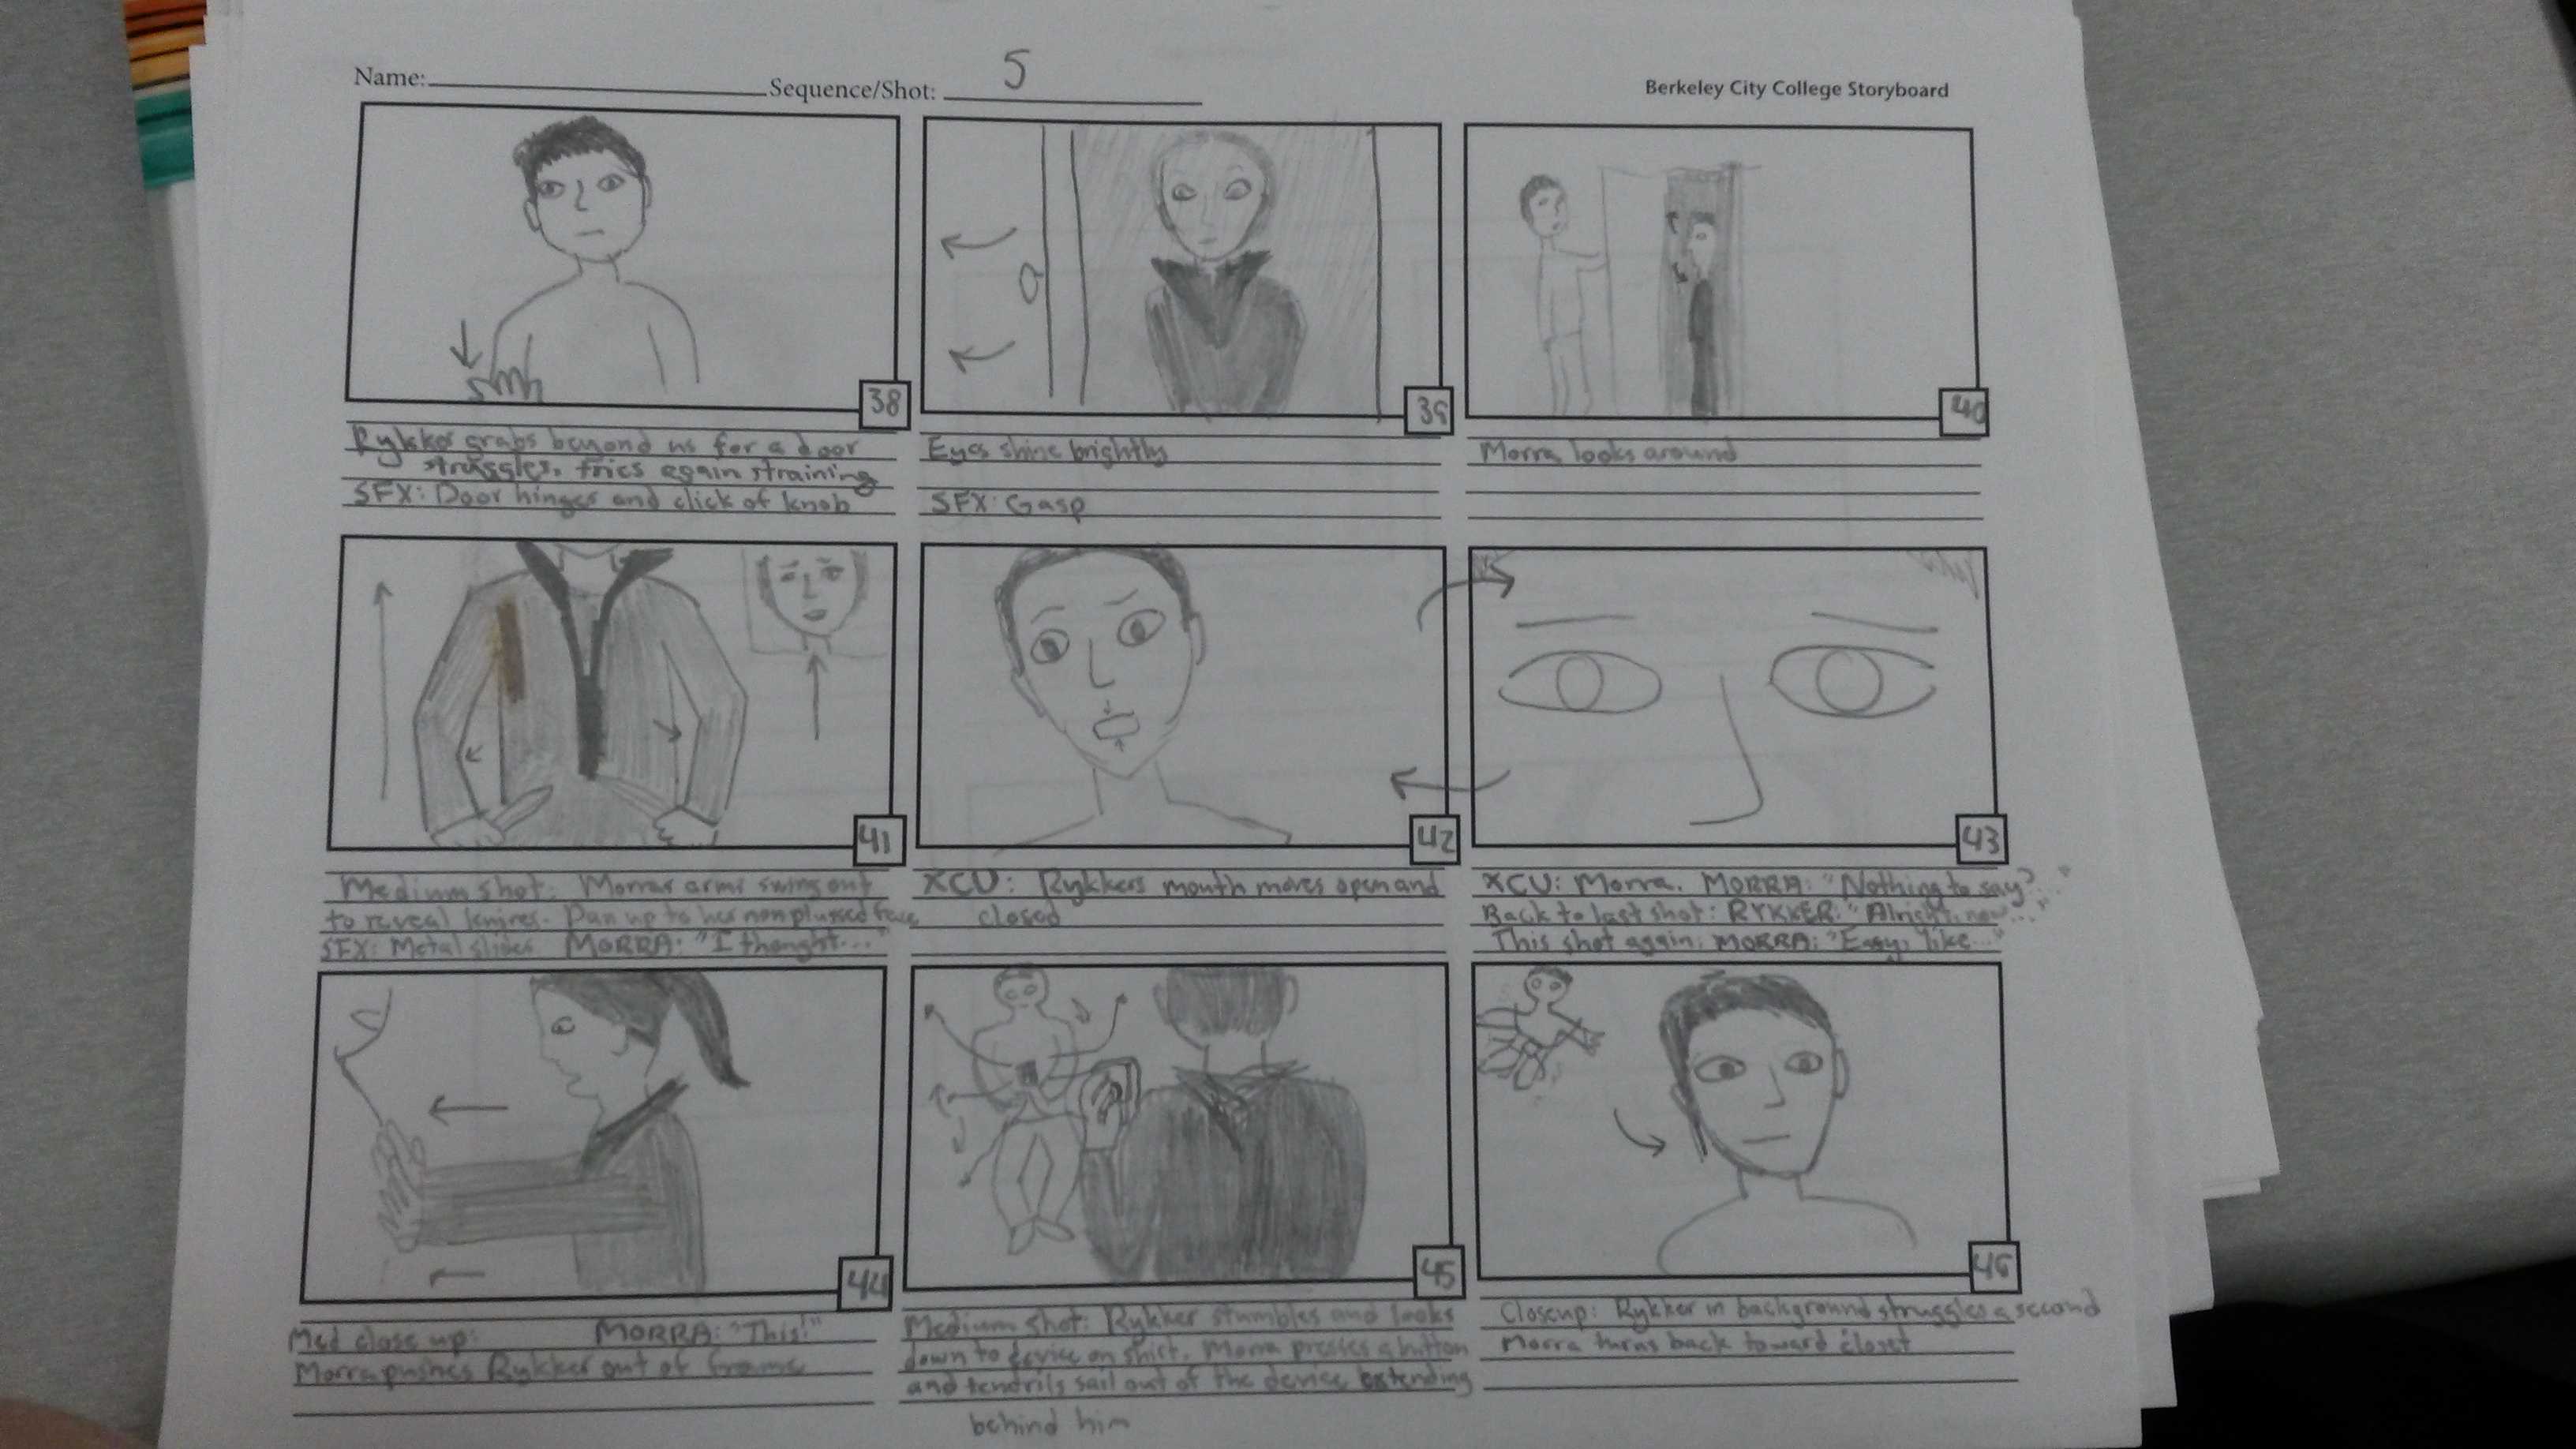 Name: Sequence/Shot: 5
Berkeley City College Storyboard
38
Rykker grabs beyond us for a door
struggles, tries again straining
SFX: Door hinges and click of knob
39
Eyes shine brightly
SFX: Gasp
40
Morra looks around
41
Medium shot: Morras arms swing out
to reveal knives. Pan up to her nonplussed face
SFX: Metal slides MORRA: "I thought..."
42
XCU: Rykkers mouth moves open and
closed
43
XCU: Morra. MORRA: "Nothing to say?..."
Back to last shot: RYKKER: "Alright, now..."
This shot again: MORRA: "Easy, like..."
44
Med close up: MORRA: "This!"
Morra pushes Rykker out of frame
45
Medium shot: Rykker stumbles and looks
down to device on shirt. Morra presses a button
and tendrils sail out of the device extending
behind him
46
Closeup: Rykker in background struggles a second
Morra turns back toward closet